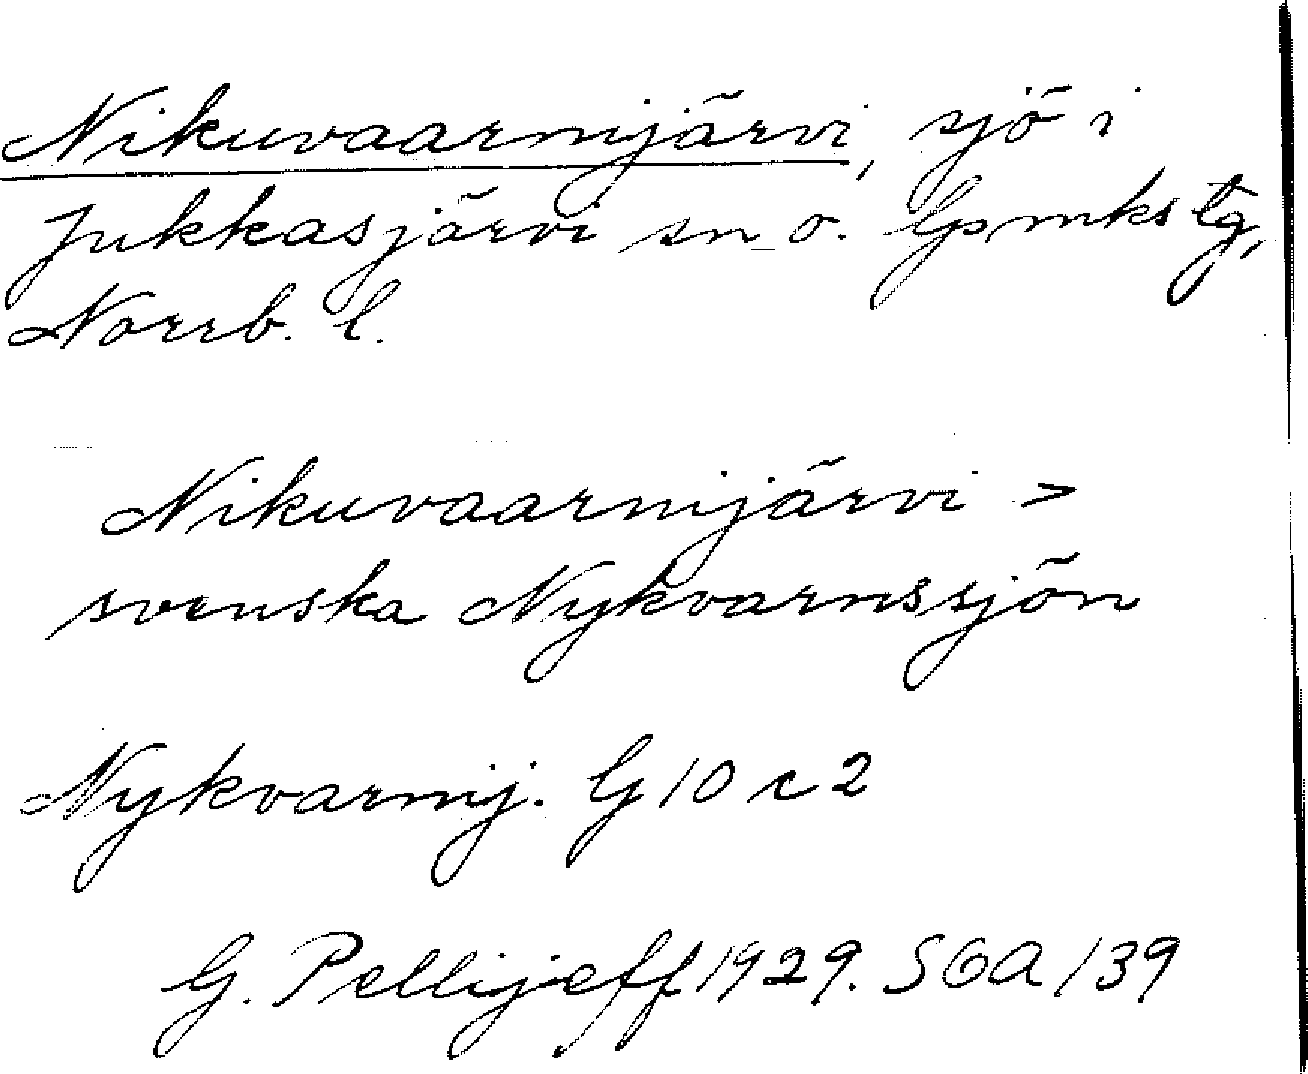 Nikuvaarnijärvi, sjö i
Jukkasjärvi sn o. lpmkstg,
Norrb. l.
Nikuvaarnijärvi >
svenska Nykvarnssjön
Nykvarnij. G 10 c 2
G. Pellijeff 1929. SOA 139